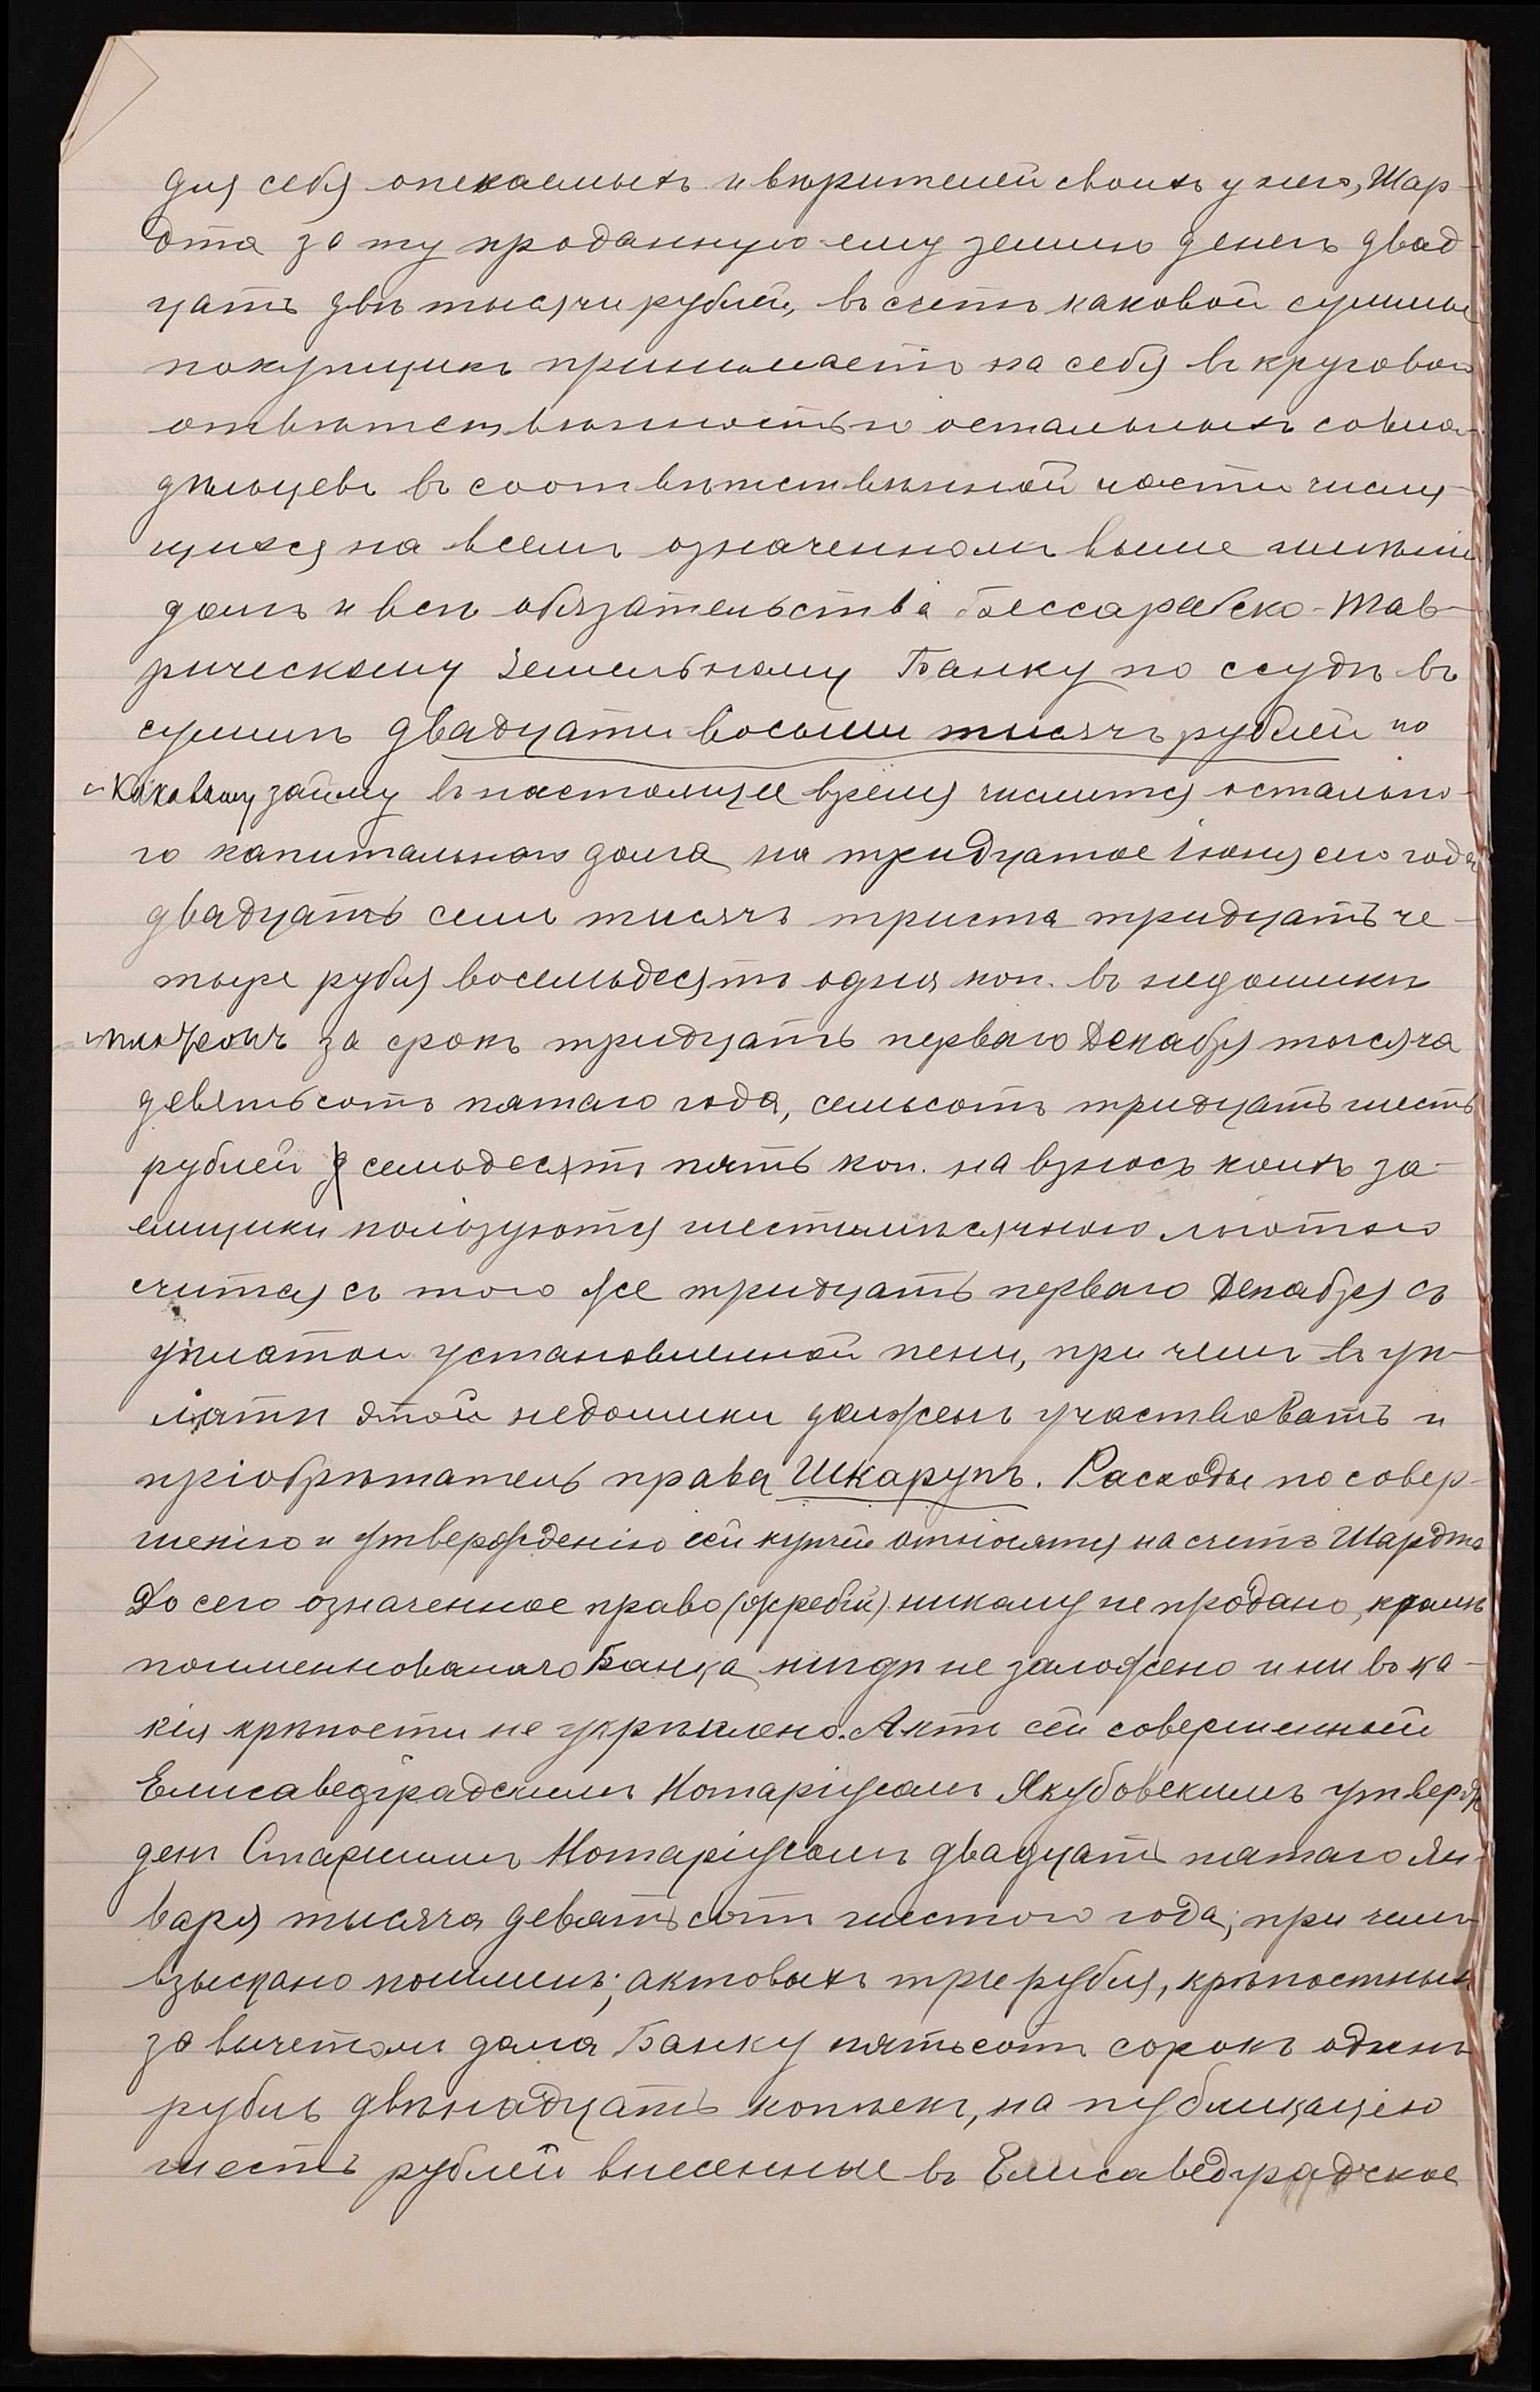 для себя опекаемыхъ и вѣрителей своихъ у него, Шар-
дта за ту проданную ему землю денегъ двад-
цать двѣ тысячи рублей, въ счетъ каковой суммы
покупщикъ принимаетъ на себя въ круговой
отвѣтственностью остальныхъ совла-
дѣльцевъ въ соотвѣтственной части числя-
щихся на всемъ означенномъ выше имѣніи
долгъ и всѣ обязательства Бессарабско-Тав-
рическому Земельному Банку по ссудѣ въ
суммѣ двадцати восьми тысячъ рублей по
каковому займу въ настоящее время числится остально-
го капитальнаго долга на тридцатое Іюня сего года
двадцать семь тысячъ триста тридцать че-
тыре рубля восемьдесятъ одна коп. въ недоимкѣ
платежомъ за срокъ тридцать перваго Декабря тысяча
девятьсотъ пятаго года, семьсотъ тридцать шесть
рублей семьдесятъ пять коп. на взносъ коихъ за-
емщики пользуются шестимѣсячною льготою
считая съ того же тридцать перваго Декабря съ
уплатой установленной пени, при чемъ въ уп-
латѣ этой недоимки долженъ участвовать и
пріобрѣтатель права Шкарупъ. Расходы по совер-
шенію и утвержденію сей купчей относятся на счетъ Шардта
До сего означенное право (жребій) никому не продано, кромѣ
поименнованаго Банка нигдѣ не заложено и ни въ ка-
кія крѣпости не укрѣплено. Актъ сей совершенный
Елисаведградскимъ Нотаріусомъ Якубовскимъ утверж
денъ Старшимъ Нотаріусомъ двадцать пятаго Ян-
варя тысяча девятьсотъ шестого года, при чемъ
взыскано пошлинъ; актовыхъ три рубля, крѣпостныхъ
за вычетомъ долга Банку пятьсотъ сорокъ одинъ
рубль двѣнадцать копѣекъ, на публикацію
шесть рублей внесенные въ Елисаведградское